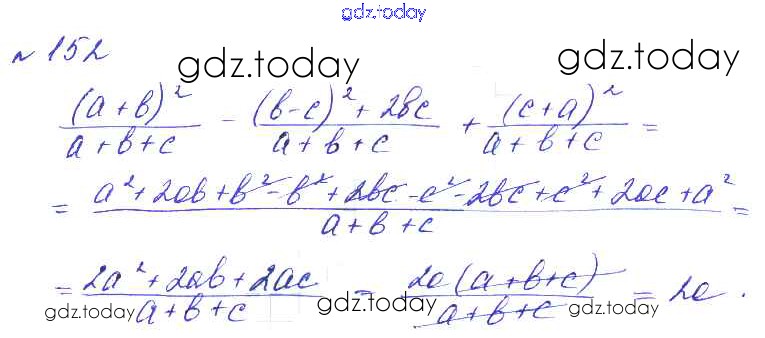 gdz.today
№ 152
gdz.today gdz.today
(a+b)²/(a+b+c) - ((b-c)²+2bc)/(a+b+c) + (c+a)²/(a+b+c) =
= (a²+2ab+b²-b²+2bc-c²-2bc+c²+2ac+a²)/(a+b+c) =
= (2a²+2ab+2ac)/(a+b+c) = 2a(a+b+c)/(a+b+c) = 2a.
gdz.today gdz.today gdz.today